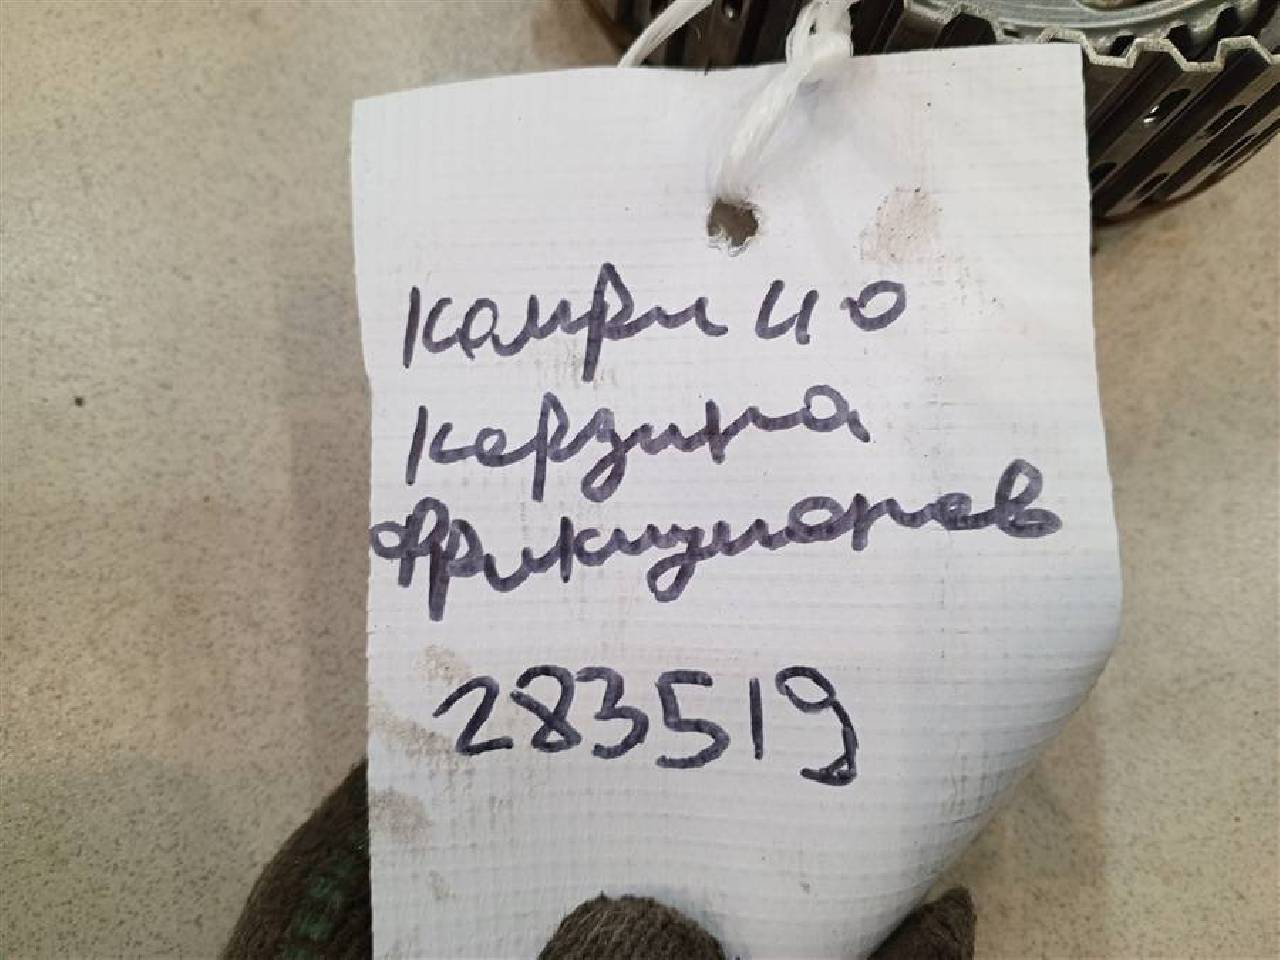 Камри 40
Корзина
Фрикционов
283519